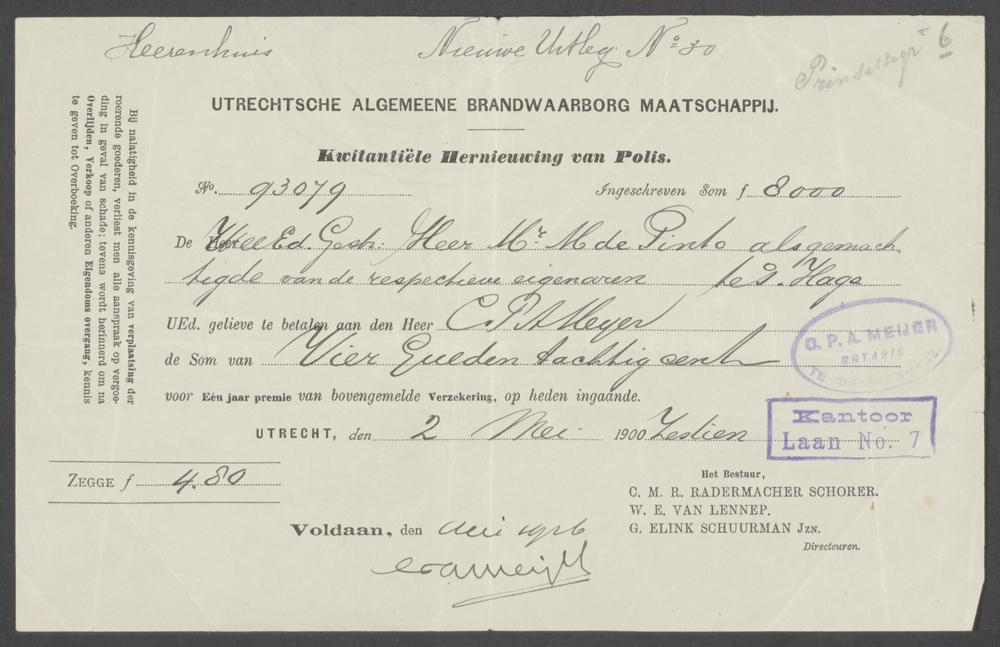 Heerenhuis Nieuwe Uitleg No 30
6
UTRECHTSCHE ALGEMEENE BRANDWAARBORG MAATSCHAPPIJ.
Kwitantiële Hernieuwing van Polis.
No. 93079 Ingeschreven Som f 8000
De Heer WelEd. Gestr. Heer Mr M de Pinto als gemach
tigde van de respectieve eigenaren te s. Hage
UEd. gelieve te betalen aan den Heer C. P. A Meyer
de Som van Vier Gulden tachtig cent
voor Eén jaar premie van bovengemelde Verzekering, op heden ingaande.
UTRECHT, den 2 Mei 1900 Zestien
ZEGGE f 4.80
Het Bestuur,
C. M. R. RADERMACHER SCHORER.
W. E. VAN LENNEP.
G. ELINK SCHUURMAN JZN.
Directeuren.
Voldaan, den Mei 1916
Bij nalatigheid in de kennisgeving van verplaatsing der
roerende goederen, verliest men alle aanspraak op vergoe-
ding in geval van schade; tevens wordt herinnerd om na
Overlijden, Verkoop of anderen Eigendoms overgang, kennis
te geven tot Overboeking.
C. P. A. MEIJER
NOTARIS
TE 'S GRAVENHAGE
Kantoor
Laan No. 7